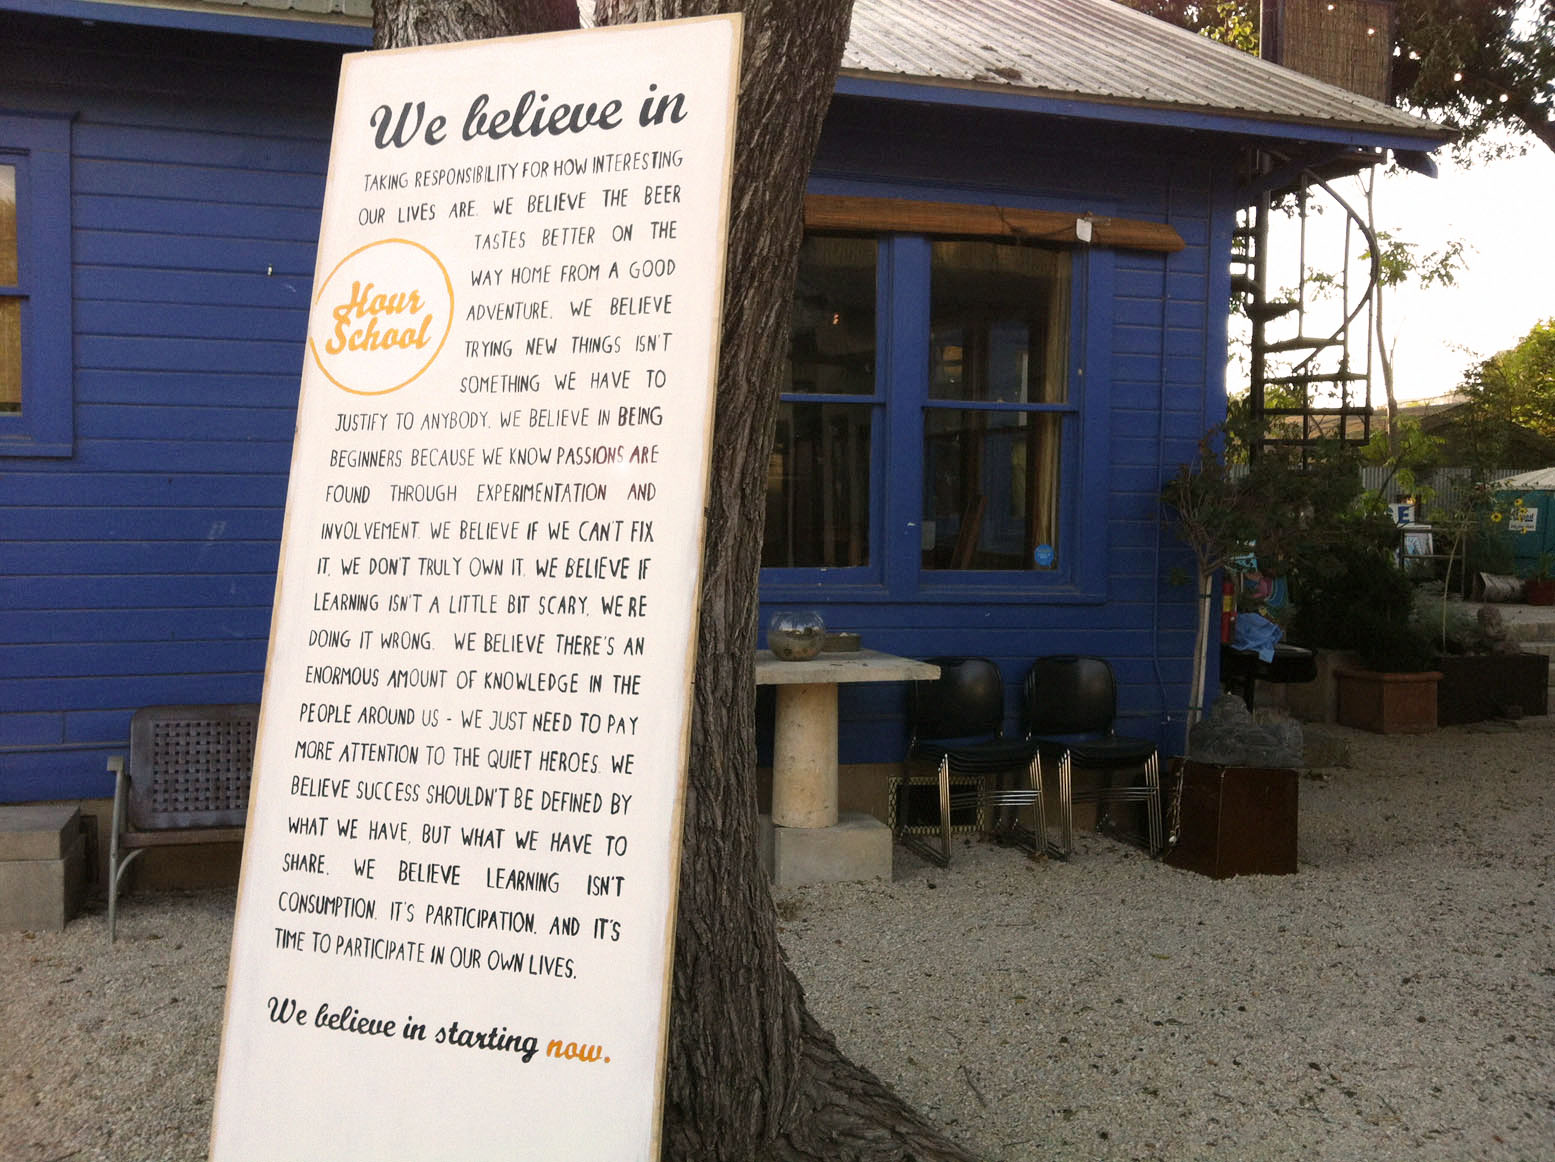 We believe in
TAKING RESPONSIBILITY FOR HOW INTERESTING
OUR LIVES ARE. WE BELIEVE THE BEER
TASTES BETTER ON THE
WAY HOME FROM A GOOD
ADVENTURE. WE BELIEVE
TRYING NEW THINGS ISN'T
SOMETHING WE HAVE TO
Hour
School
JUSTIFY TO ANYBODY. WE BELIEVE IN BEING
BEGINNERS BECAUSE WE KNOW PASSIONS ARE
FOUND THROUGH EXPERIMENTATION AND
INVOLVEMENT. WE BELIEVE IF WE CAN'T FIX
IT, WE DON'T TRULY OWN IT. WE BELIEVE IF
LEARNING ISN'T A LITTLE BIT SCARY, WE'RE
DOING IT WRONG. WE BELIEVE THERE'S AN
ENORMOUS AMOUNT OF KNOWLEDGE IN THE
PEOPLE AROUND US - WE JUST NEED TO PAY
MORE ATTENTION TO THE QUIET HEROES. WE
BELIEVE SUCCESS SHOULDN'T BE DEFINED BY
WHAT WE HAVE, BUT WHAT WE HAVE TO
SHARE. WE BELIEVE LEARNING ISN'T
CONSUMPTION. IT'S PARTICIPATION. AND IT'S
TIME TO PARTICIPATE IN OUR OWN LIVES.
We believe in starting now.
E